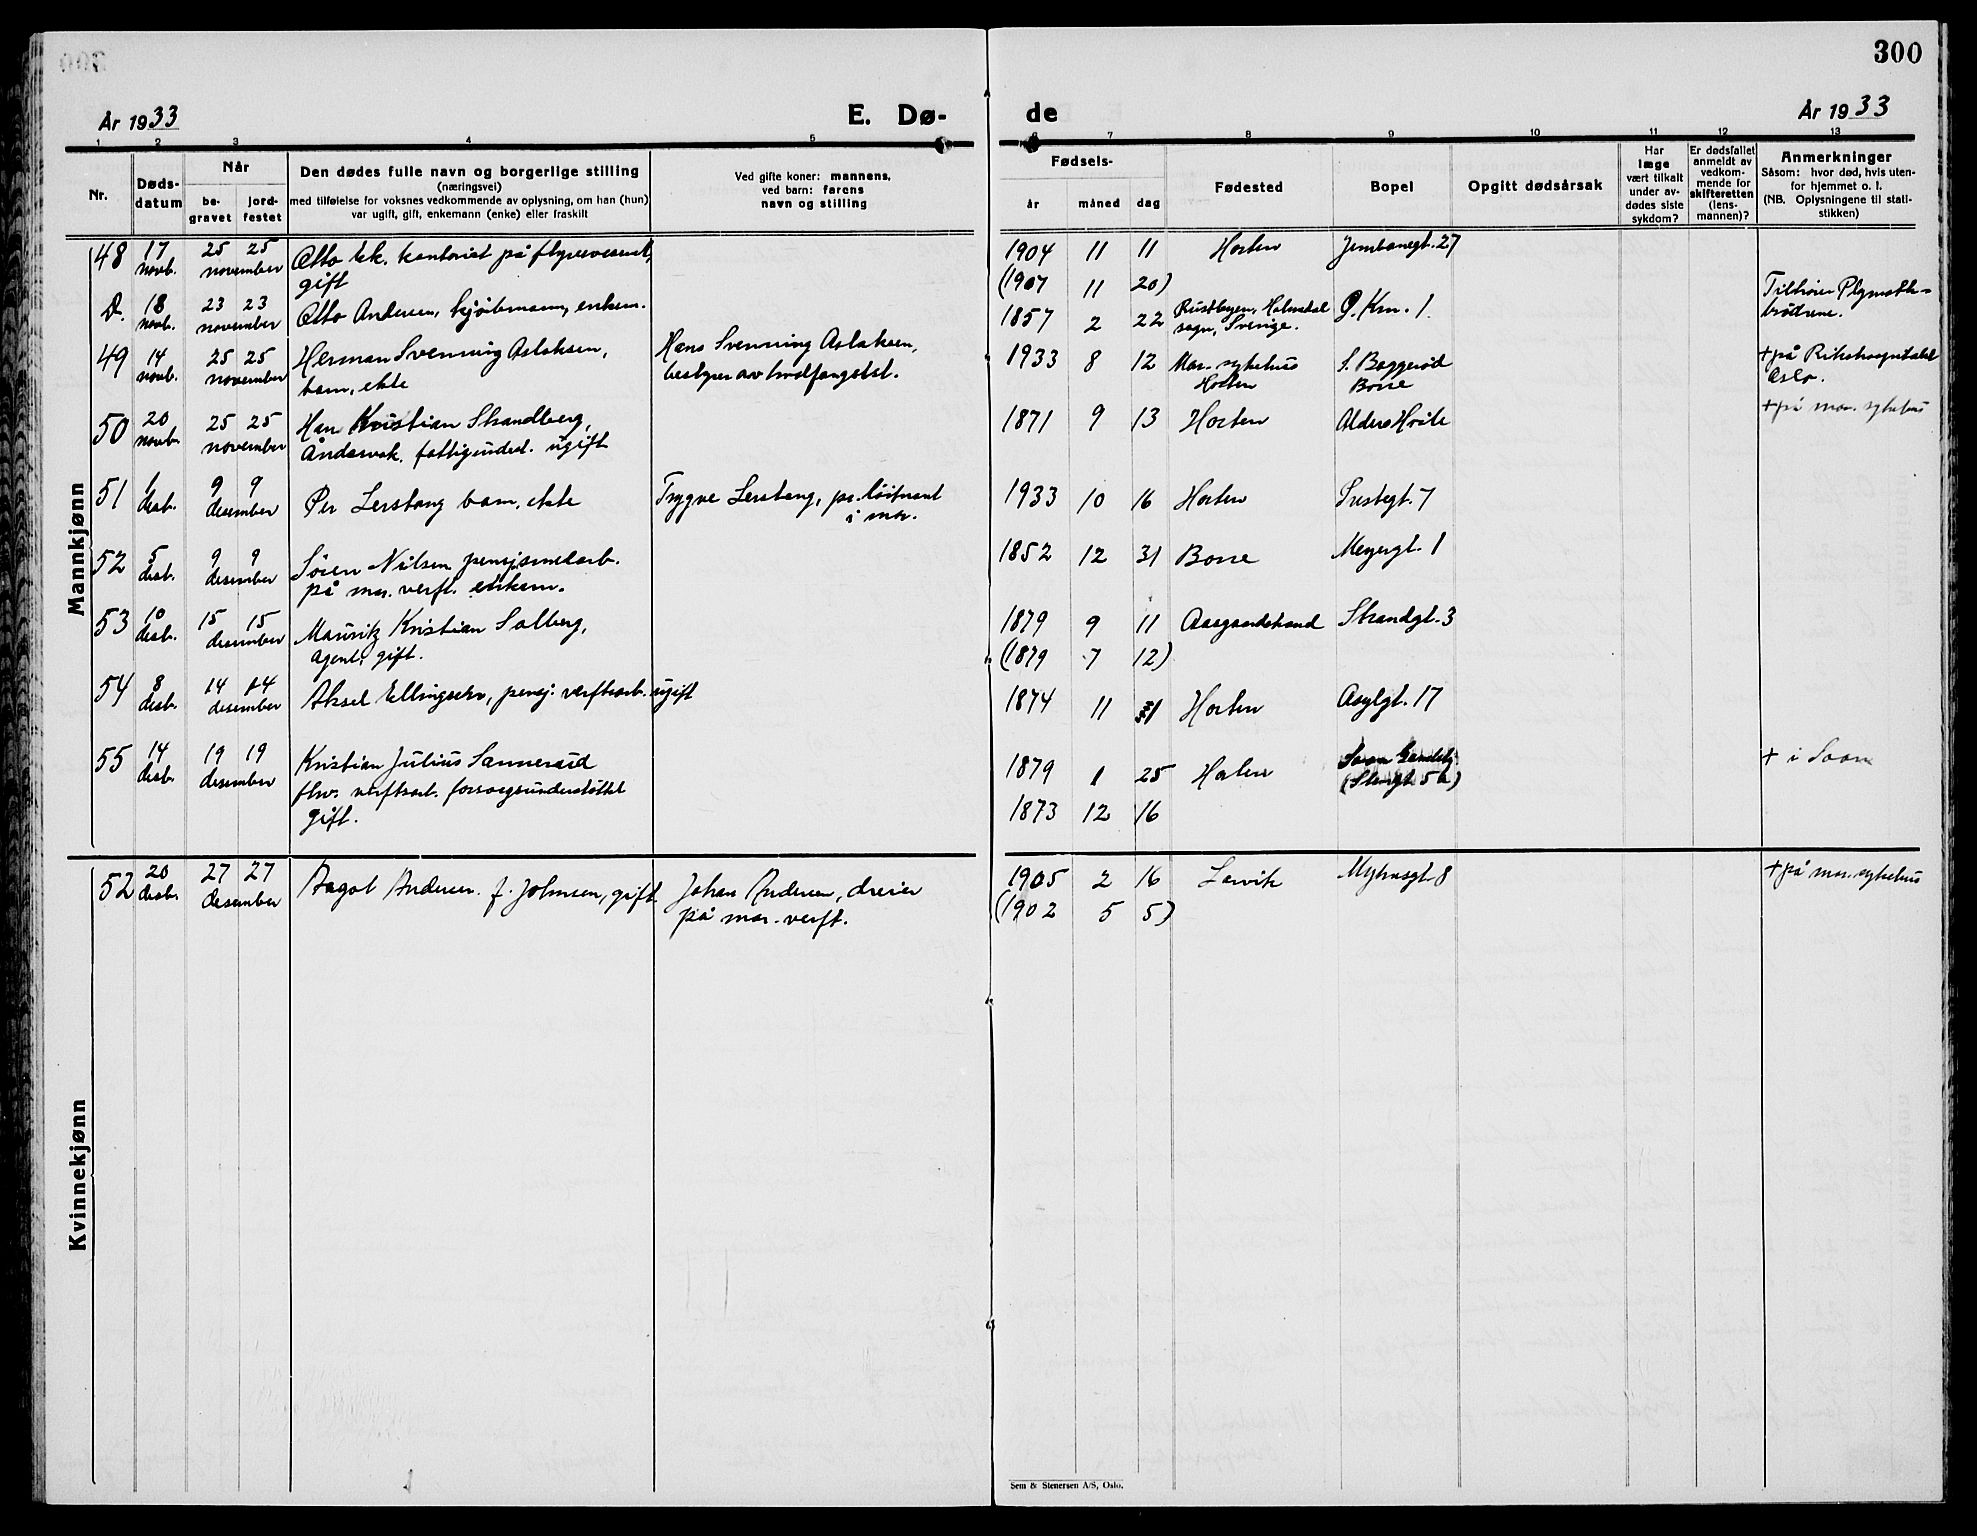 300
År 1933
E. Dø-
de
År 1933
1 2 3 4 5 6 7 8 9 10 11 12 13
Nr.
Døds-
datum
Når
be-
gravet
jord-
festet
Den dødes fulle navn og borgerlige stilling
(næringsvei)
med tilføielse for voksnes vedkommende av oplysning, om han (hun)
var ugift, gift, enkemann (enke) eller fraskilt
Ved gifte koner: mannens,
ved barn: farens
navn og stilling
Fødsels-
år måned dag
Fødested
Bopel
Opgitt dødsårsak
Har
læge
vært tilkalt
under av-
dødes siste
sykdom?
Er dødsfallet
anmeldt av
vedkom-
mende for
skifteretten
(lens-
mannen)?
Anmerkninger
Såsom: hvor død, hvis uten-
for hjemmet o. l.
(NB. Oplysningene til stati-
stikken)
Mannkjønn
48 17 25 25 Otto kontorist på flyvevesenet, 1904 11 11 Horten Jernbanegt. 27
novb. november gift (1907 11 20)
D. 18 23 23 Otto Andersen, kjøbmann, enkem. 1857 2 22 Holmedal G. Krn. 1. Tilhører Plymouth-
novb. november sogn, Sverige. brødrene.
49 14 25 25 Herman Svenning Aslaksen, Hans Svenning Aslaksen, 1933 8 12 Mar. sykehus S. Baggerød + på Rikshospitalet
novb. november barn, ekte bestyrer av Horten Borre Oslo.
50 20 25 25 Hans Kristian Strandberg, 1871 9 13 Horten Alders Hvile + på mar. sykehus
novb. november Åndssvak, fattigunderst. ugift
51 1 9 9 Per Lerstang barn, ekte Trygve Lerstang, pr. løitnant 1933 10 16 Horten 7
desb. desember i mar.
52 5 9 9 Søren Nilsen pensjonertarb. 1852 12 31 Borre Meyergt. 1
desb. desember på mar. verft. enkem.
53 10 15 15 Mauritz Kristian Solberg, 1879 9 11 Aasgaardstrand Strandgt. 3
desb. desember agent, gift. (1879 7 12)
54 8 14 14 Aksel Ellingsen, pensj. verftsarb. ugift 1874 11 Horten Asylgt. 17
desb. desember
55 14 19 19 Kristian Julius Sannerud 1879 1 25 Horten Soon + i Soon
desb. desember fhv. verftsarb. forsorgsunderstøttet
gift. 1873 12 16
Kvinnekjønn
52 20 27 27 Aagot Andersen f. Johnsen, gift. Johan Andersen, dreier 1905 2 16 Larvik Myhresgt 8 + på mar. sykehus
desb. desember på mar. verft. (1902 5 5)
Sem & Stenersen A/S, Oslo.